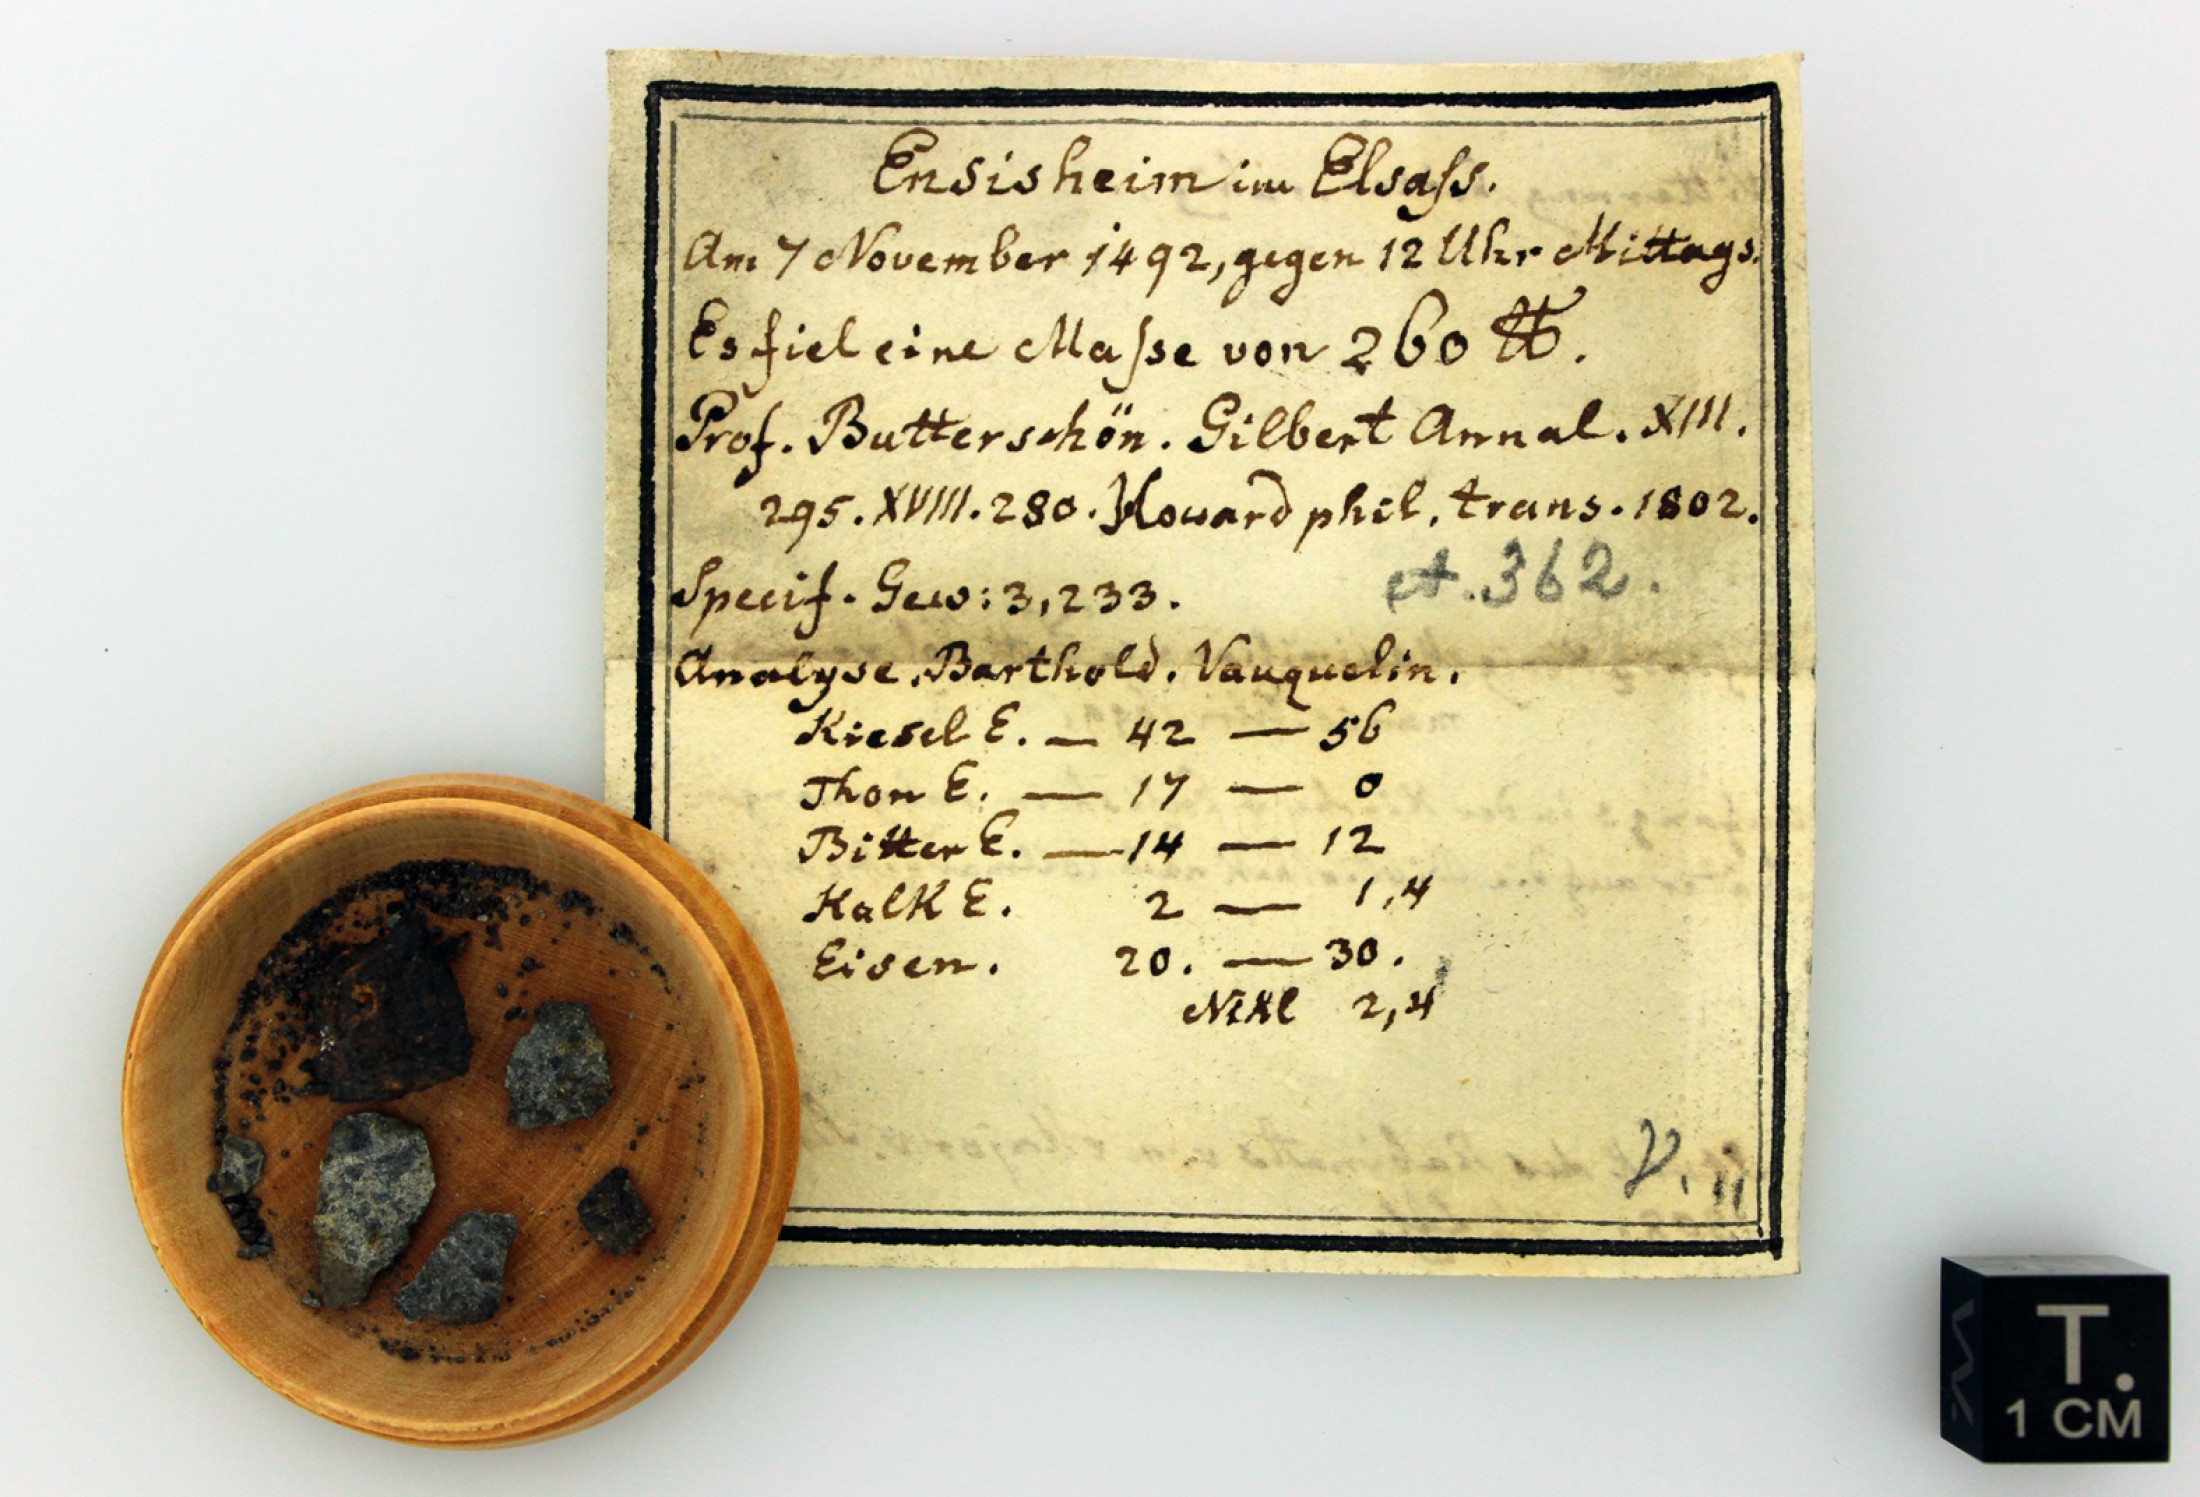 Ensisheim im Elsaſs.
Am 7 November 1492, gegen 12 Uhr Mittags.
Es fiel eine Maſse von 260 ℔.
Prof. Butterschön. Gilbert Annal. XIII.
295. XVIII. 280. Howard phil. trans. 1802.
Specif. Gew: 3,233.
et. 362.
Analyse. Barthold. Vauquelin.
Kiesel E. — 42 — 56
Thon E. — 17 — 0
Bitter E. — 14 — 12
Kalk E. 2 — 1,4
Eisen. 20. — 30.
Nikl 2,4
V. 11
T.
1 CM